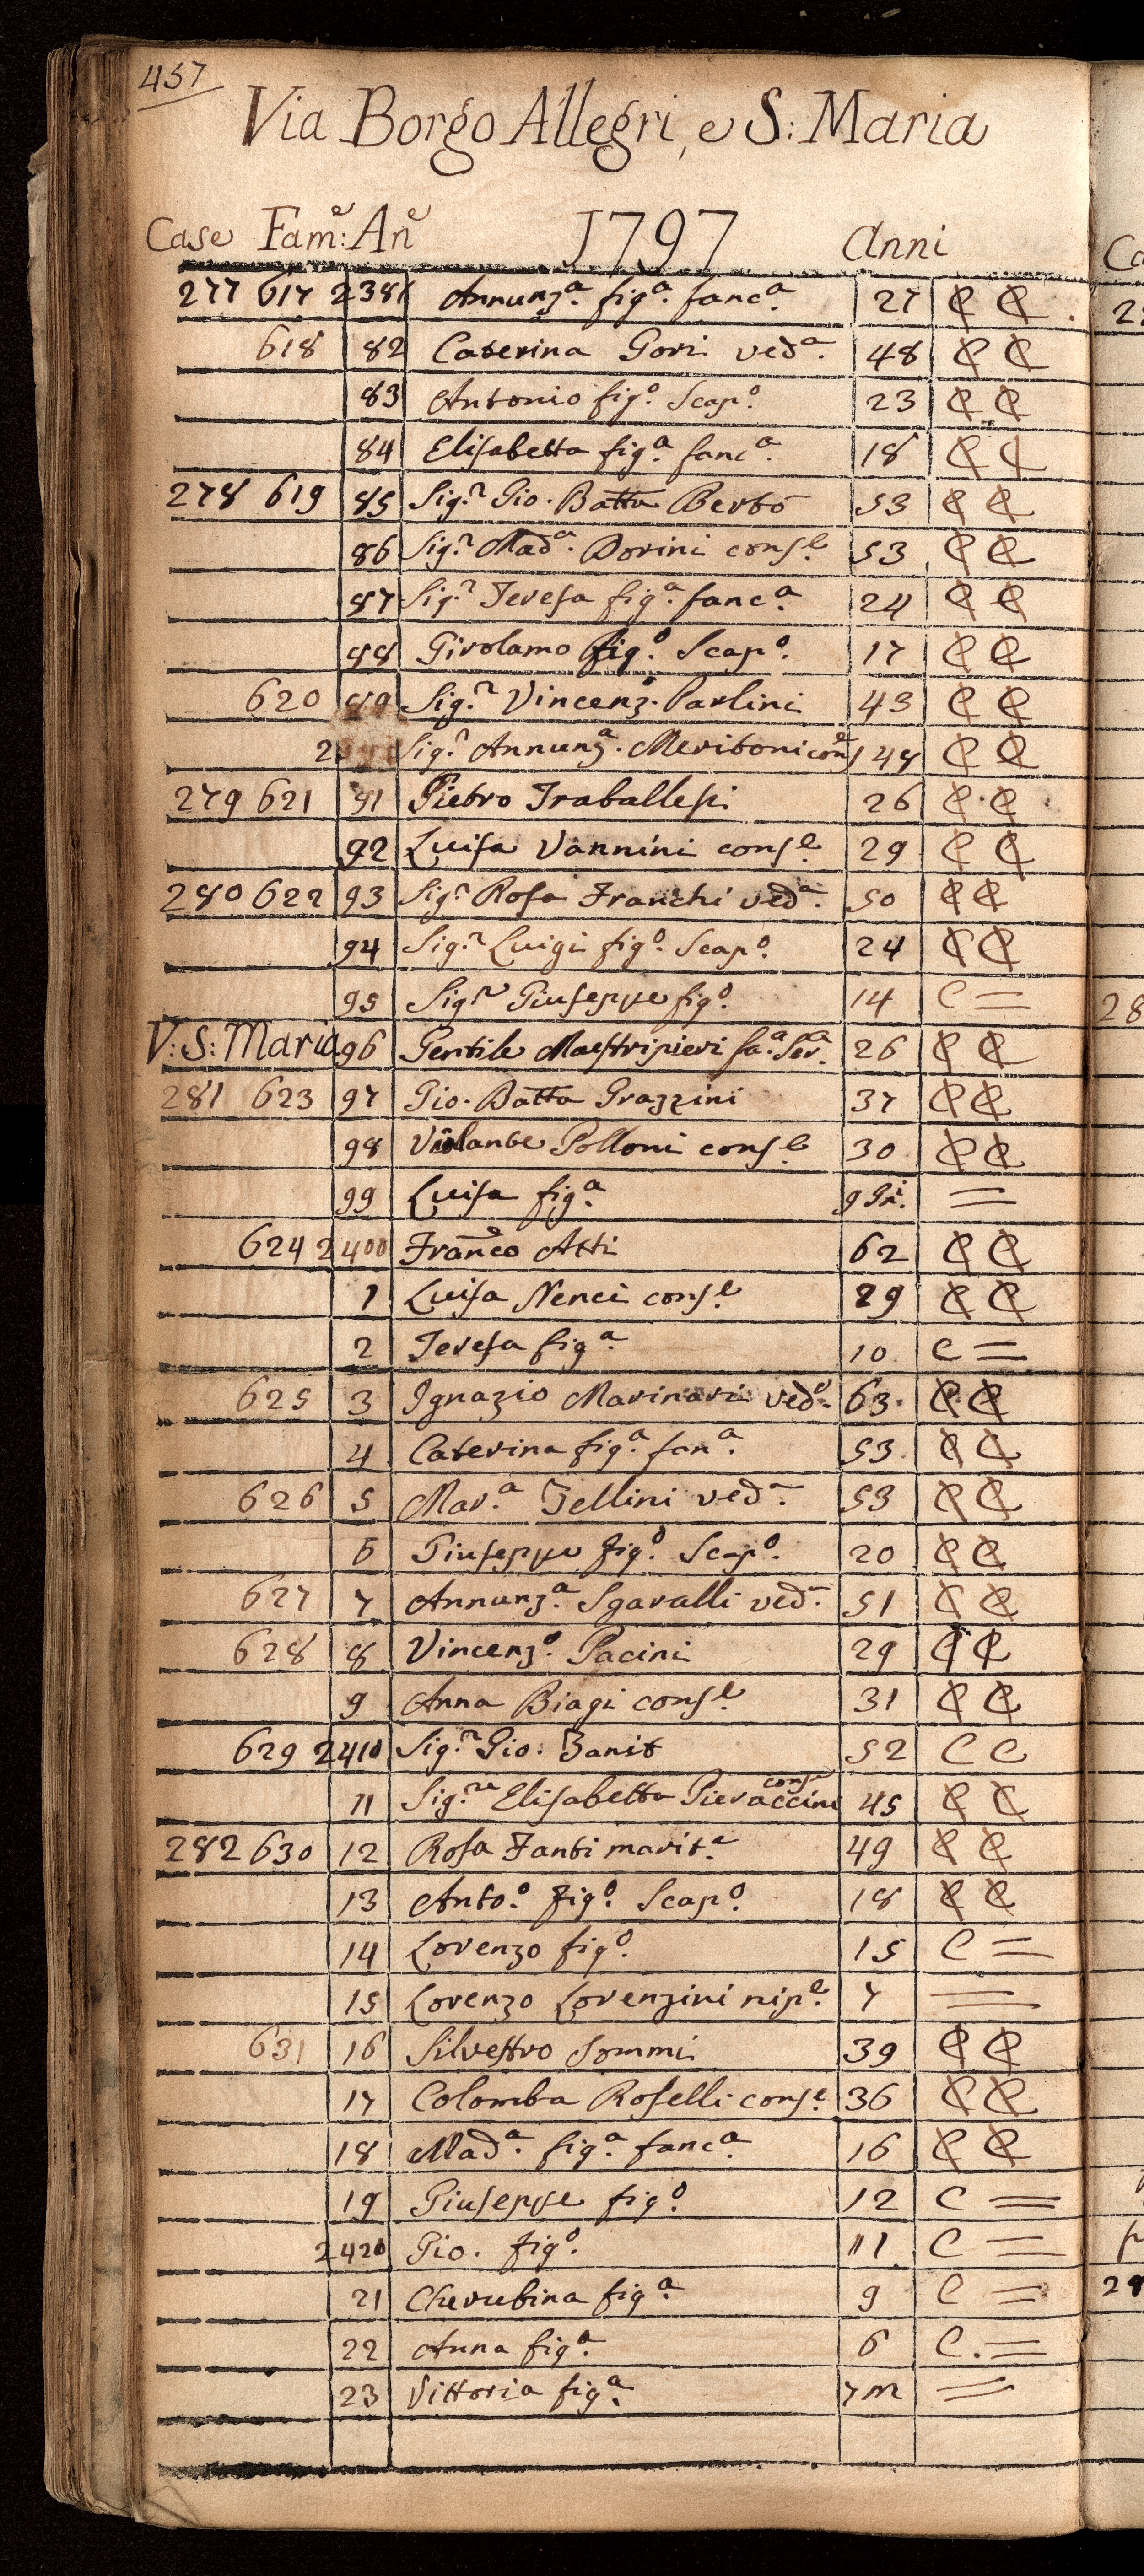 457
Via Borgo Allegri, e S: Maria
Case Fam:e An:e 1797 Anni
277 617 2381 Annunz.a fig.a fanc.a 27 C C
618 82 Caterina Gori ved.a 48 C C
83 Antonio fig.o Scap.o 23 C C
84 Elisabetta fig.a fanc.a 18 C C
278 619 85 Sig.r Gio. Batta Berbo 53 C C
86 Sig.r Mad.a Dorini cons.e 53 C C
87 Sig.r Teresa fig.a fanc.a 24 C C
88 Girolamo fig.o Scap.o 17 C C
620 89 Sig.r Vincenz.o Parlini 43 C C
2 Sig.r Annunz.a Meriboni con.e 44 C C
279 621 91 Pietro Traballesi 26 C C
92 Luisa Vannini cons.e 29 C C
280 622 93 Sig.r Rosa Franchi ved.a 50 C C
94 Sig.r Luigi fig.o Scap.o 24 C C
95 Sig.r Giuseppe fig.o 14 C =
V: S: Maria 96 Gentile Maestripieri fa.a Ser.a 26 C C
281 623 97 Gio. Batta Grazzini 37 C C
98 Violante Polloni cons.e 30 C C
99 Luisa fig.a 9 Gi. =
624 2400 Franco Atti 62 C C
1 Luisa Nenci cons.e 29 C C
2 Teresa fig.a 10 C =
625 3 Ignazio Marinari ved.o 63. C C
4 Caterina fig.a fan.a 53 C C
626 5 Mar.a Tellini ved.a 53 C C
6 Giuseppe fig.o Scap.o 20 C C
627 7 Annunz.a Sgaralli ved.a 51 C C
628 8 Vincenz.o Pacini 29 C C
9 Anna Biagi cons.e 31 C C
629 2410 Sig.r Gio. Zanit 52 C C
11 Sig.ra Elisabetta Pieraccini cons.e 45 C C
282 630 12 Rosa Fanti marit.a 49 C C
13 Anto.o fig.o Scap.o 18 C C
14 Lorenzo fig.o 15 C =
15 Lorenzo Lorenzini nip.e 7 =
631 16 Silvestro Sommi 39 C C
17 Colomba Roselli cons.e 36 C C
18 Mad.a fig.a fanc.a 16 C C
19 Giuseppe fig.o 12 C =
2420 Gio. fig.o 11 C =
21 Cherubina fig.a 9 C =
22 Anna fig.a 6 C. =
23 Vittoria fig.a 7 m =